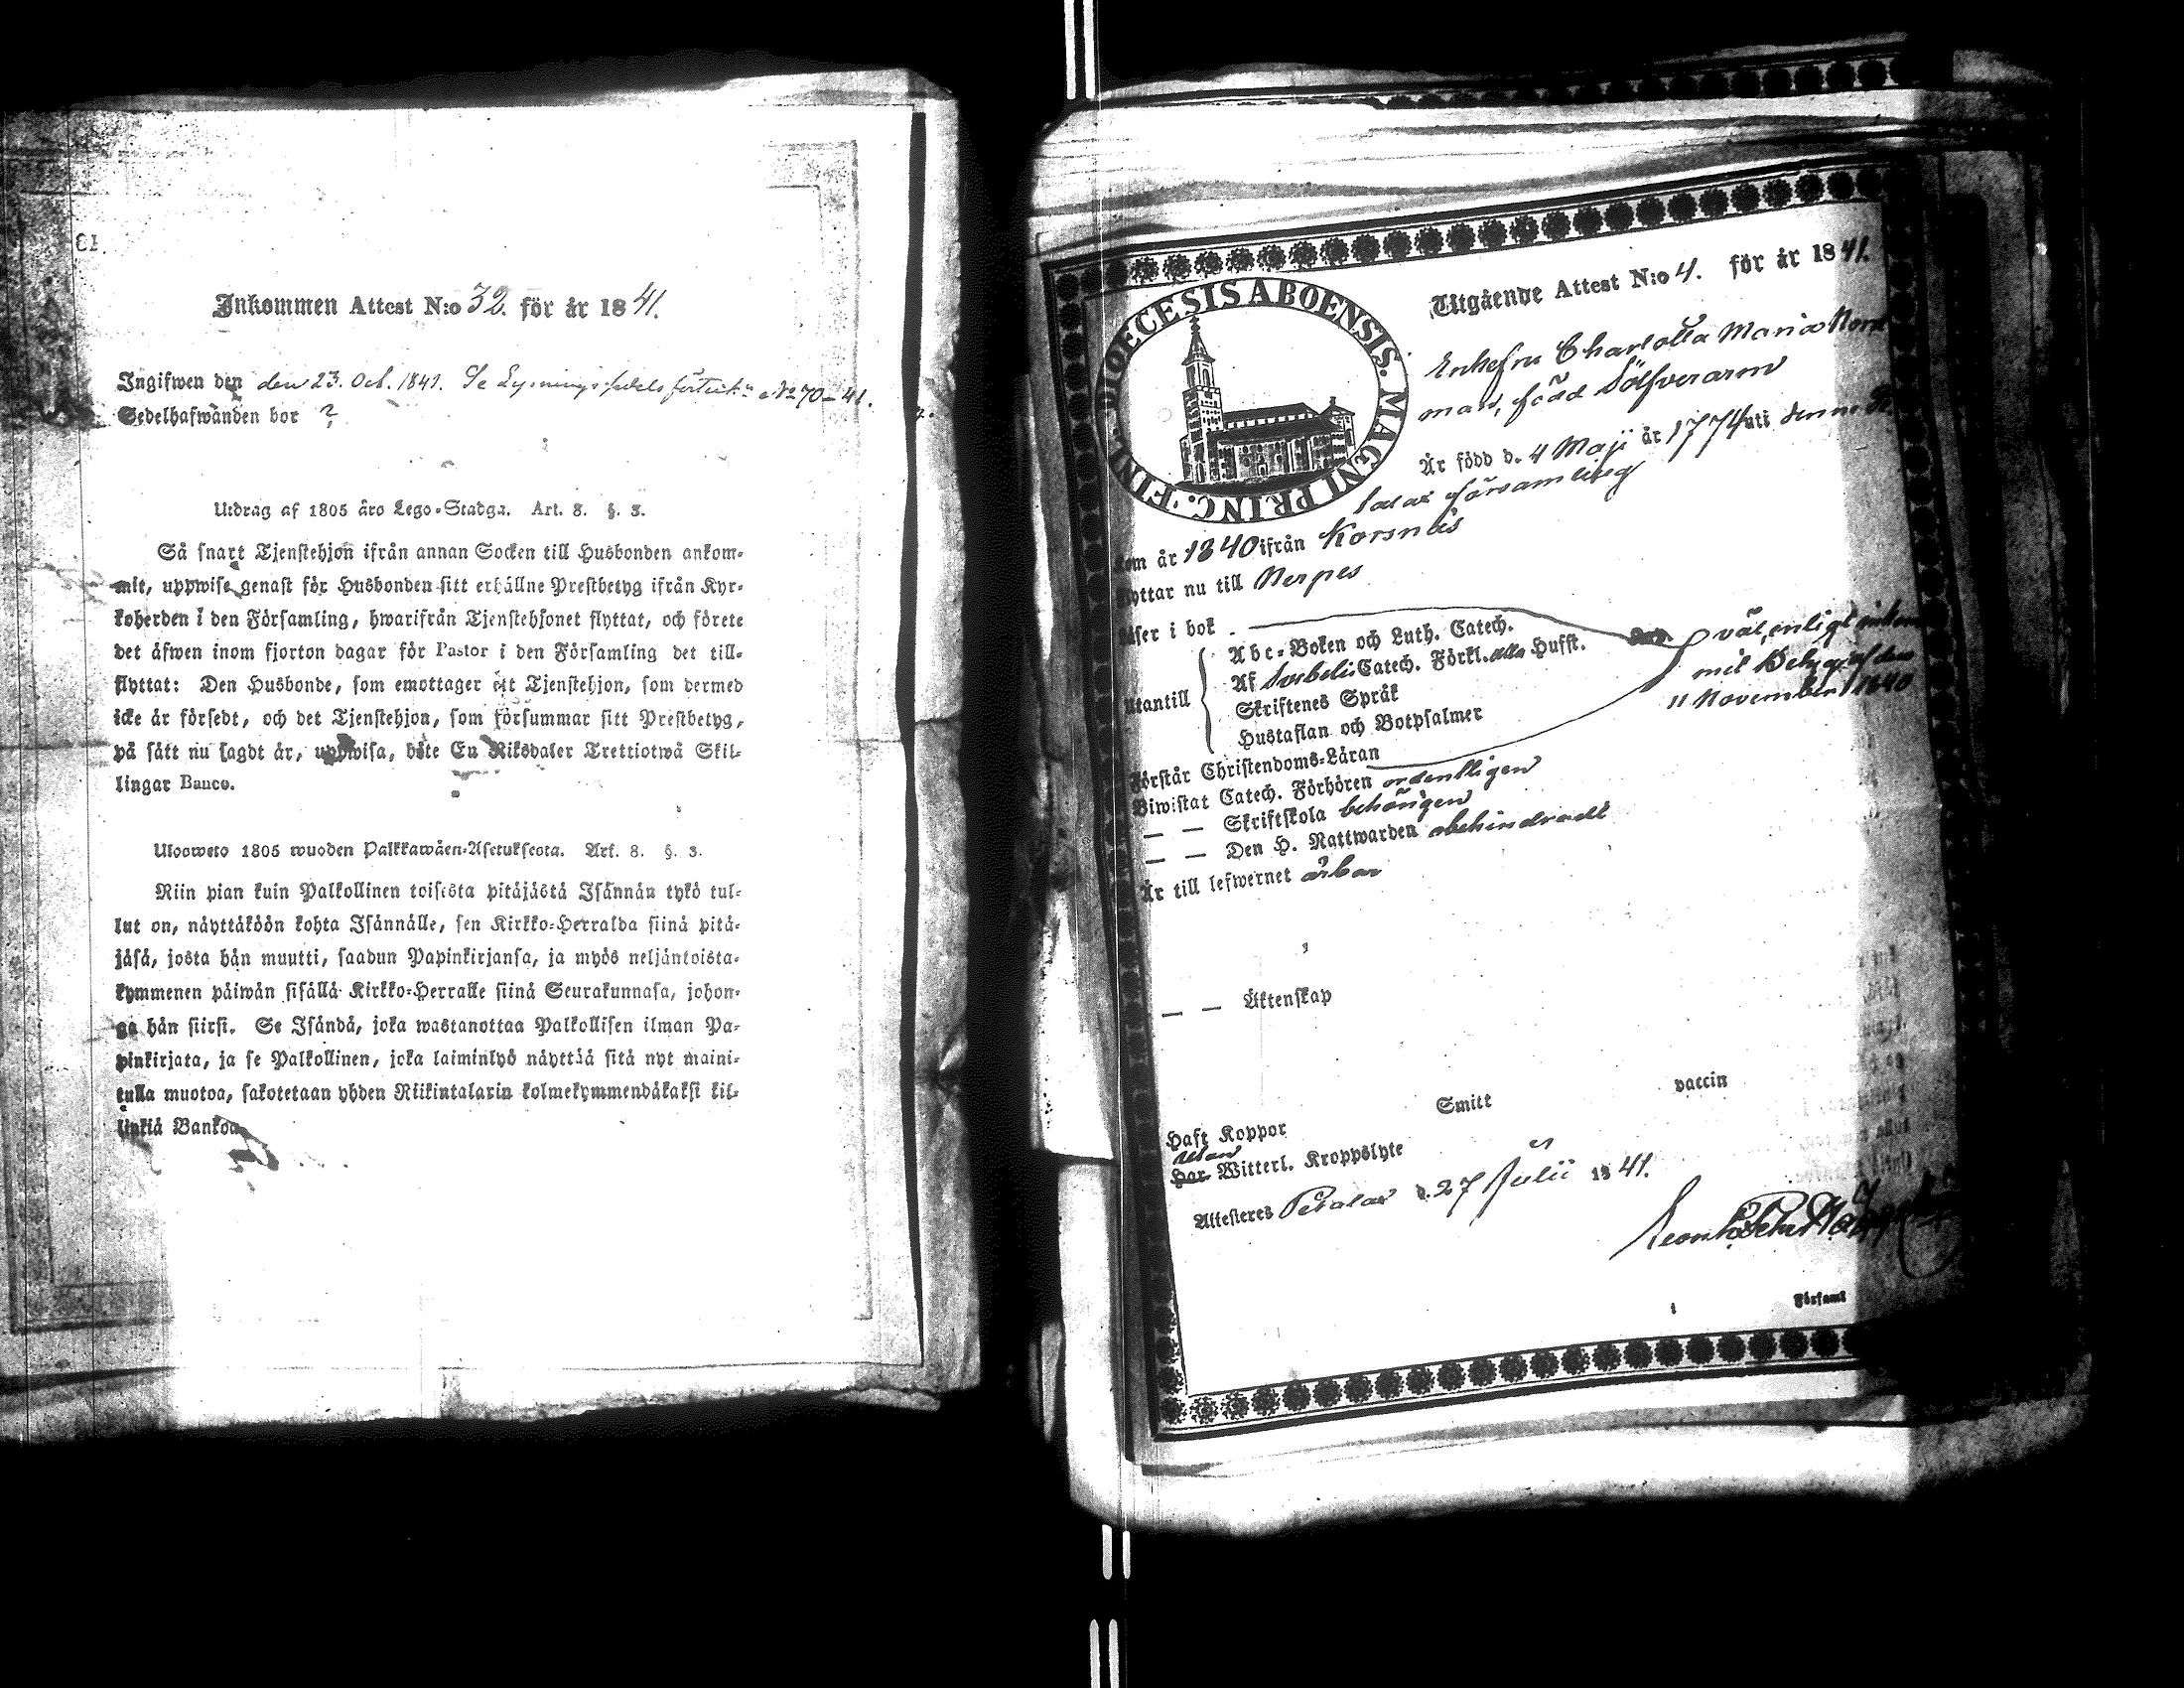 Inkommen Attest N:o 32. för år 1841.
Ingifwen den den 23. Oct. 1841. Se Lysningssedels förteckn: No 70-41.
Sedelhafwanden bor ?
Utdrag af 1805 års Lego-Stadga. Art. 8. §. 3.
Så snart Tjenstehjon ifrån annan Socken till Husbonden ankom-
mit, uppwise genast för Husbonden sitt erhållne Prestbetyg ifrån Kyr-
koherden i den Församling, hwarifrån Tjenstehjonet flyttat, och förete
det äfwen inom fjorton dagar för Pastor i den Församling det till-
flyttat: Den Husbonde, som emottager ett Tjenstehjon, som dermed
icke är försedt, och det Tjenstehjon, som försummar sitt Prestbetyg,
på sätt nu sagdt är, uppwisa, böte En Riksdaler Trettiotwå Skil-
lingar Banco.
Ulosweto 1805 wuoden Palkkawäen-Asetuksesta. Art. 8. §. 3.
Niin pian kuin Palkollinen toisesta pitäjästä Isännän tykö tul-
lut on, näyttäköön kohta Isännälle, sen Kirkko-Herralda siinä pitä-
jäsä, josta hän muutti, saadun Papinkirjansa, ja myös neljäntoista-
kymmenen päiwän sisällä Kirkko-Herralle siinä Seurakunnasa, johon-
ga hän siirsi. Se Isändä, joka wastanottaa Palkollisen ilman Pa-
pinkirjata, ja se Palkollinen, joka laiminlyö näyttää sitä nyt maini-
tulla muotoa, sakotetaan yhden Riikintalarin kolmekymmendäkaksi kil-
linkiä Bankoa
DIOECESIS ABOENSIS. MAGNI PRINC. FINL.
Utgående Attest N:o 4. för år 1841.
Enkefru Charlotta Maria
man, född Sölfverarm
Är född d. 4 Maji år 1774 uti denne
lax församling
kom år 1840 ifrån Korsnäs
flyttar nu till Nerpes
Läser i bok
Utantill
Abc-Boken och Luth. Catech.
Af Svebelii Catech. Förkl. alla Husst.
Skriftenes Språk
Hustaflan och Botpsalmer
väl, enligt
mit Betyg af den
11 November 1840
Förstår Christendoms-Läran
Biwistat Catech. Förhören ordentligen
— — Skriftskola behörigen
— — Den H. Nattwarden obehindradt
Är till lefwernet ärbar
— — Äktenskap
Haft Koppor Smitt vaccin
utan
Har Witterl. Kroppslyte
Attesteres Petalax d. 27 Julii 1841.
i Församl